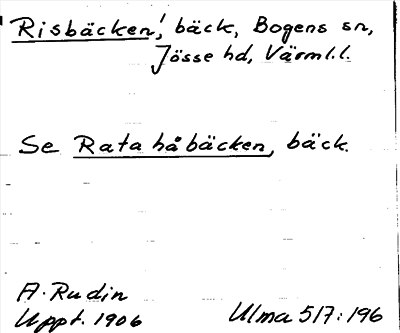 Risbäcken,' bäck, Bogens sn,
Jösse hd, Värml.l.
Se Rata håbäcken, bäck.
A. Rudin
Uppt. 1906 Ulma 517:196